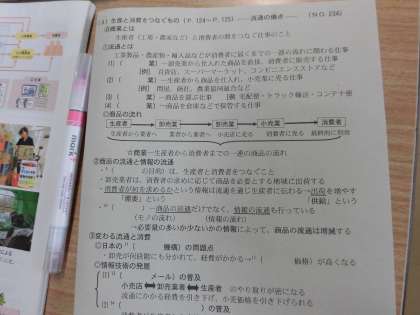 (4) 生産と消費をつなぐもの (P.124～P.125) ……流通の働き…… (NO.224)
①商業とは
生産者（工場・農家など）と消費者の間をつなぐ仕事
②流通とは
工業製品・農産物・輸入品などが消費者に届くまでの一連の流れに関わる仕事
[1] ( 業) ―卸売業から仕入れた商品を直接、消費者に販売する仕事
[例] 百貨店、スーパーマーケット、コンビニエンスストアなど
[2] ( 業) ―生産者から商品を仕入れ、小売業に売る仕事
[例] 問屋、商社、農業協同組合など
[3] ( 業) ―商品を運ぶ仕事 [例] 宅配便・トラック輸送・コンテナ便
[4] ( 業) ―商品を倉庫などで保管する仕事
◎商品の流れ
生産者 → 卸売業 → 小売業 → 消費者
生産者から業者へ 業者から業者へ 小売店に売る 消費者に売る 最終的に消費
☆商業―生産者から消費者までの一連の商品の流れ
②商品の流通と情報の流通
( の目的) は、生産者と消費者をつなぐこと
・卸売業者は、消費者の求めに応じて商品を必要とする地域に出荷する
・消費者が何を求めるかという情報は流通を通じ生産者に伝わる→出荷を増やす
「需要」という 「供給」という
( ) ―商品の流通だけでなく、情報の流通も行っている
(モノの流れ) (情報の流れ)
→必要量の多いか少ないかの情報によって、商品の流通は増減する
③変わる流通と消費
◎日本の ( 機構) の問題点
・卸売が何段階にも分かれて、経費がかかる→ ( 価格) が高くなる
◎情報技術の発展
[1] ( メール) の普及
小売店 ⇔ 卸売業者 ⇔ 生産者 のやり取りが密になる
流通にかかる経費を引き下げ、小売価格を引き下げられる
[2] ( ) の普及
mark